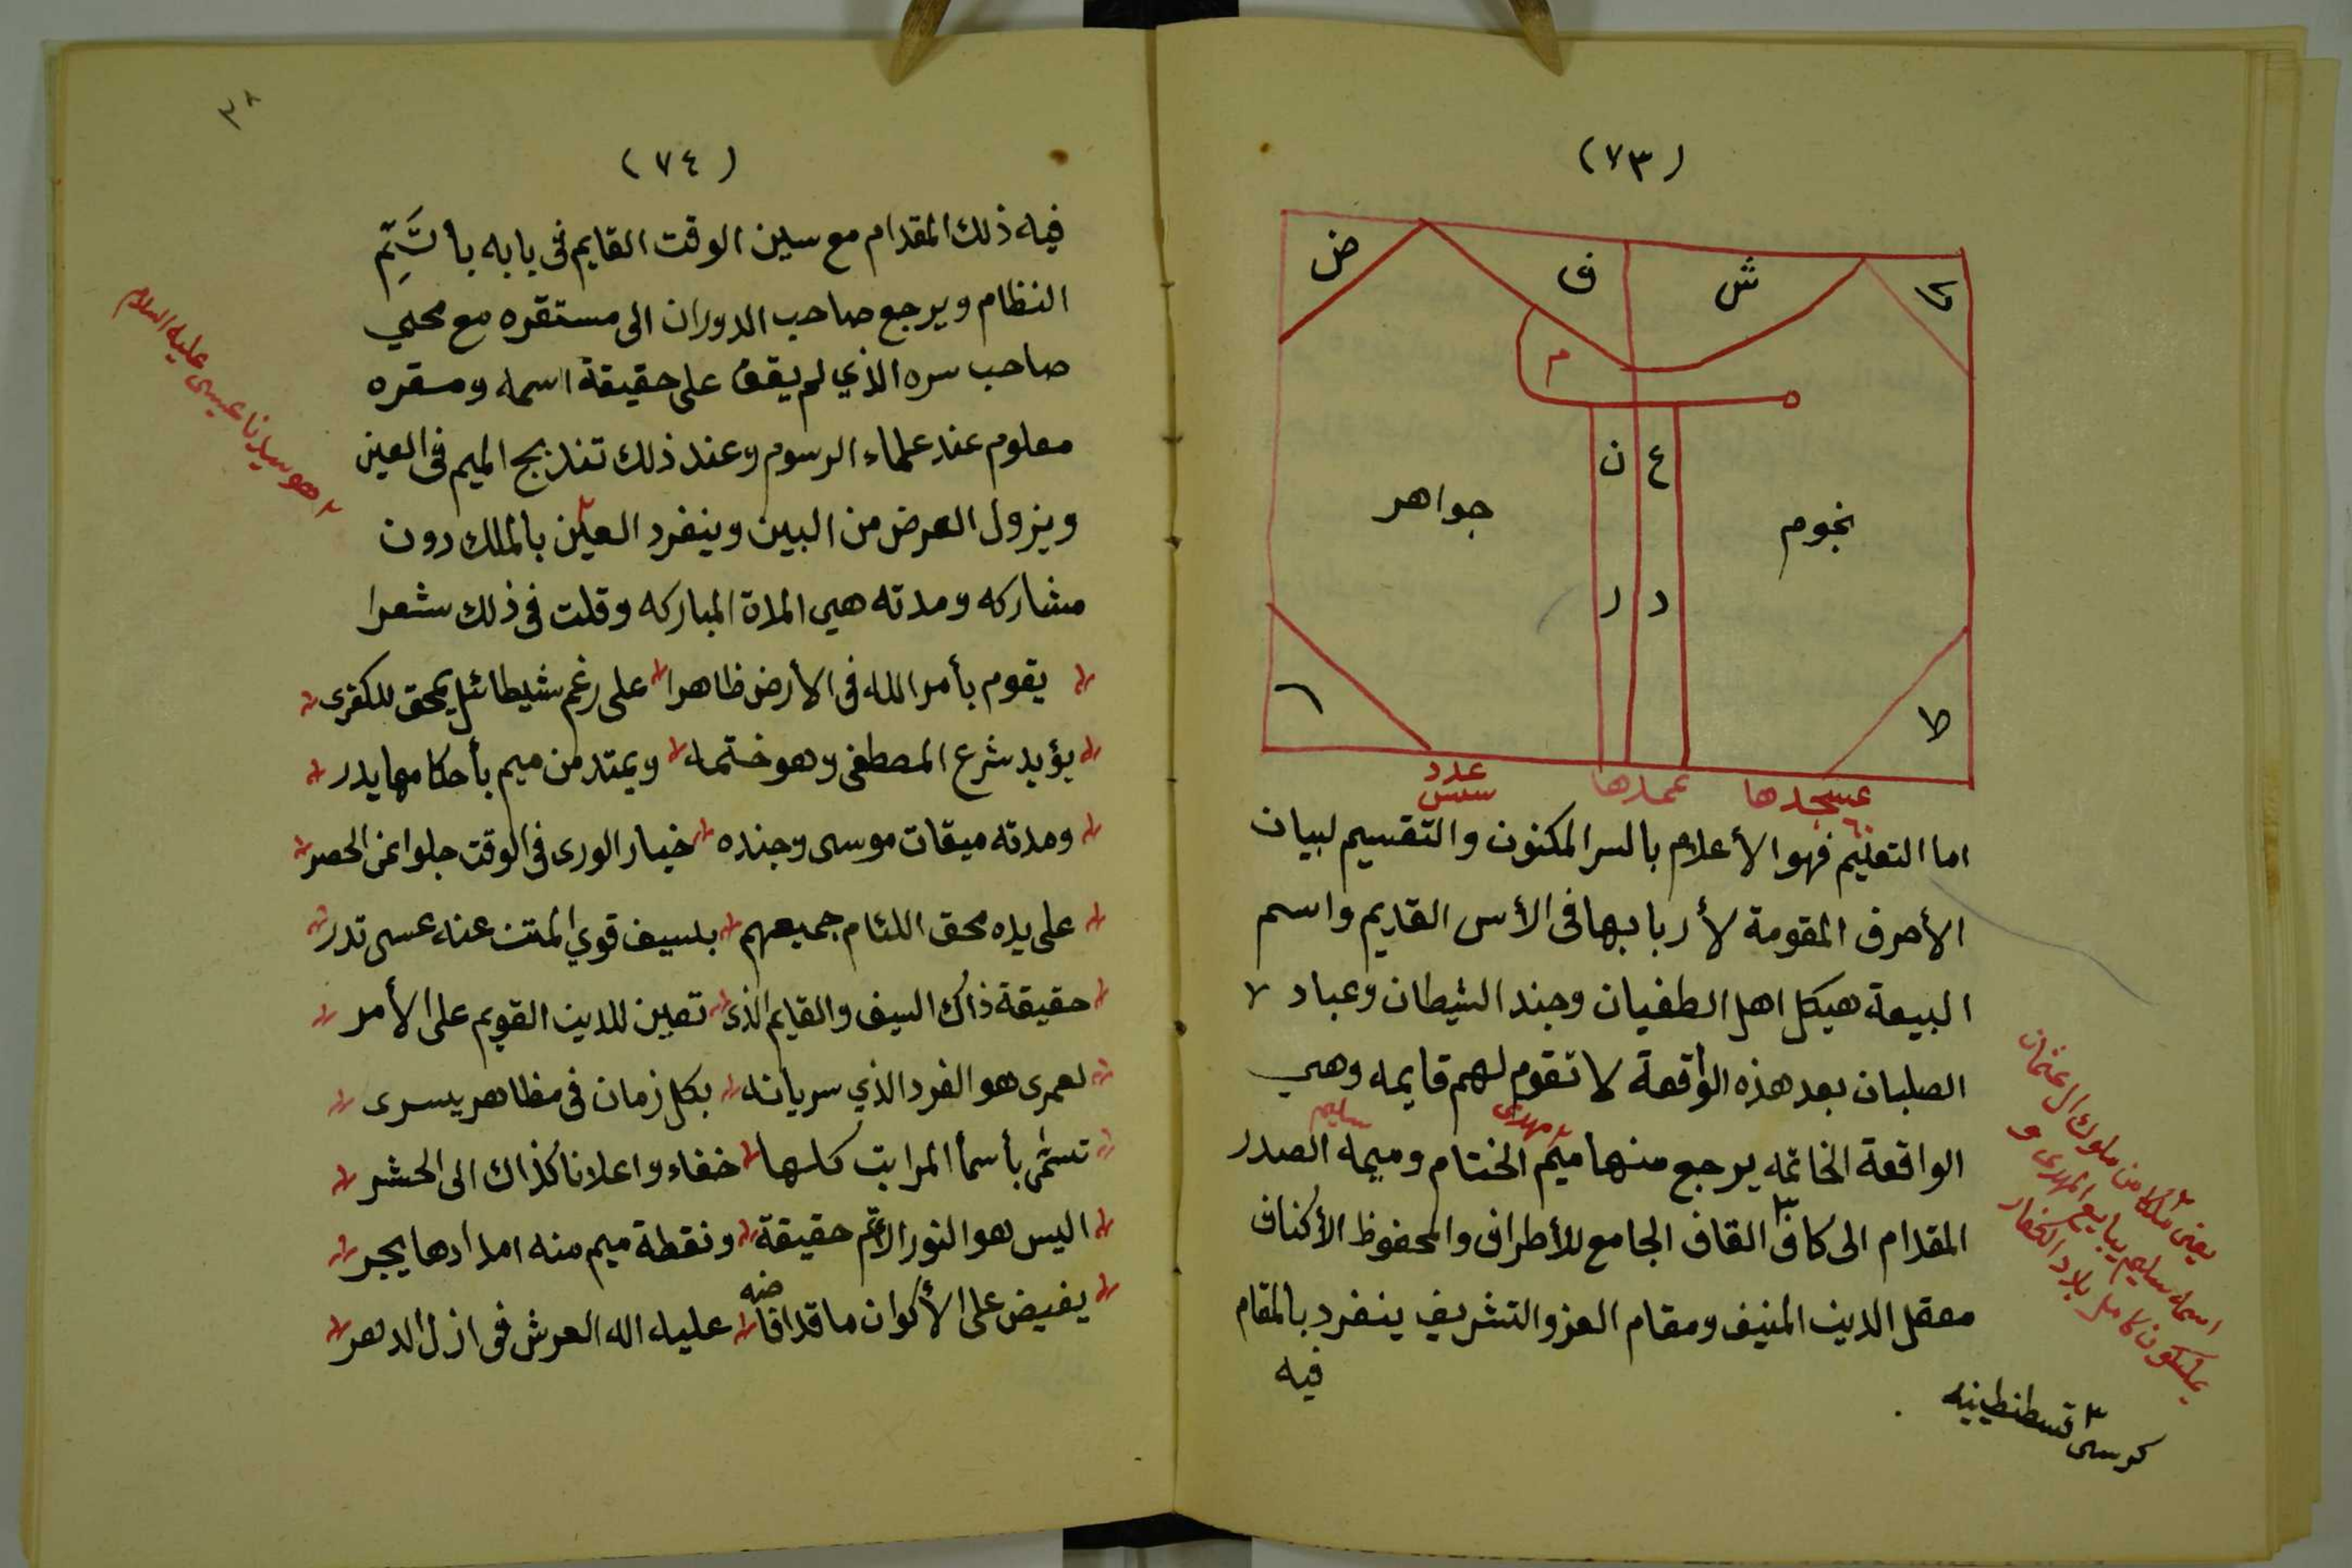 (٧٣)
ض ق ش ك
م ه
ن ع
جواهر نجوم
ر د
ا ط
عدد عمدها عسجدها
سسس ٦٠
اما التعليم فهو الأعلام بالسر المكنون والتقسيم لبيان
الأحرف المقومة لأربابها فى الأس القديم واسم
البيعة هيكل اهل الطغيان وجند الشيطان وعباد
الصلبان بعد هذه الواقعة لا تقوم لهم قايمه وهي
مهدى سليم
الواقعة الخاتمه يرجع منها ميم الختام وميمه الصدر
المقدام الى كاف٣ القاف الجامع للأطراف والمحفوظ الأكناف
معقل الدين المنيف ومقام العز والتشريف ينفرد بالمقام
فيه
يعنى ملكا من ملوك ال عثمان
اسمه سليم يبايع المهدى و
يملكون كامل بلاد الكفار
٣ كرسى قسطنطينيه
٣٨
(٧٤)
فيه ذلك المقدام مع سين الوقت القايم فى بابه بأتَمِّ
النظام ويرجع صاحب الدوران الى مستقره مع محيي
صاحب سره الذي لم يقف على حقيقة اسمه ومسقره
معلوم عند علماء الرسوم وعند ذلك تندبج الميم فى العين
ويزول العرض من البين وينفرد العين٢ بالملك دون
مشاركه ومدته هي المدة المباركه وقلت فى ذلك شعرا
يقوم بأمر الله فى الأرض ظاهرا على رغم شيطائل يمحق للكفرى
يؤيد شرع المصطفى وهو ختمه ويمتد من ميم بأحكامها يدر
ومدته ميقات موسى وجنده خيار الورى فى الوقت جلوا عن الحصر
على يده محق اللئام جميعهم بسيف قوي المتن عنه عسى تدر
حقيقة ذاك السيف والقايم الذى تعين للدين القويم على الأمر
لعمرى هو الفرد الذي سريانه بكل زمان فى مظاهر يسرى
تسمى بأسما المراتب كلها خفاء واعلانا كذاك الى الحشر
اليس هو النور الأتم حقيقة ونقطة ميم منه امدادها يجر
يفيض على الأكوان ما قد افاضه عليه اله العرش فى ازل الدهر
٢ هو سيدنا عيسى عليه السلام